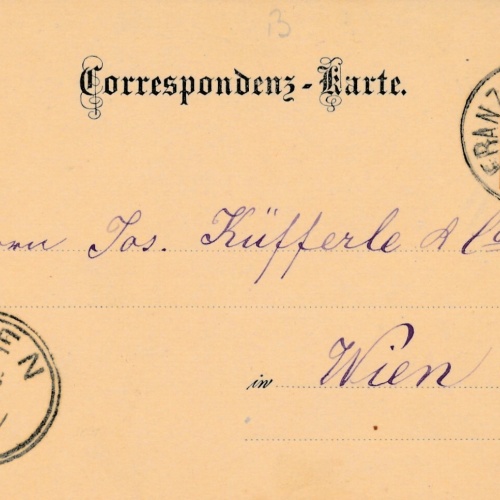 B
Correspondenz-Karte.
FRANZ
rrn Jos. Küfferle & Co
in Wien
IEN